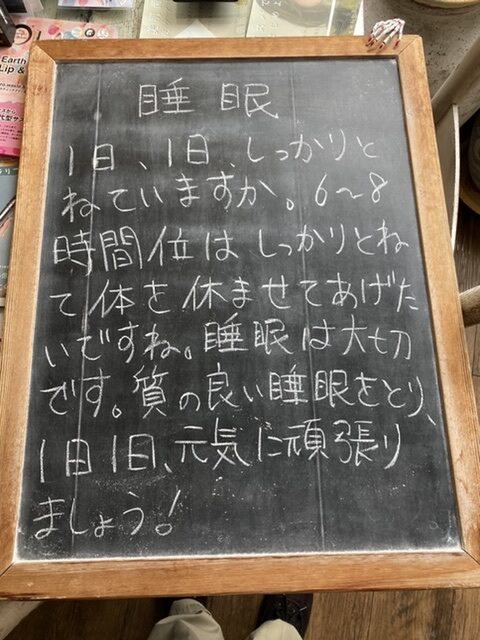 睡眠
1日、1日、しっかりと
ねていますか。6〜8
時間位は しっかりとね
て体を休ませてあげた
いですね。睡眠は大切
です。質の良い睡眠をとり、
1日1日、元気に頑張り
ましょう!
Earth
Lip &